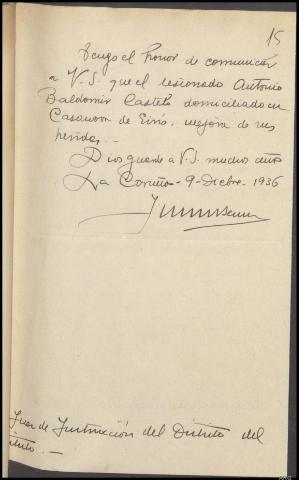 15
Tengo el honor de comunicar
a V.S. que el lesionado Antonio
Baldomir Castelo domiciliado en
Casanova de Eirís, mejora de sus
heridas. -
Dios guarde a V.S. muchos años
La Coruña - 9 - Dicbre - 1936
Juez de Instrucción del Distrito del
 -